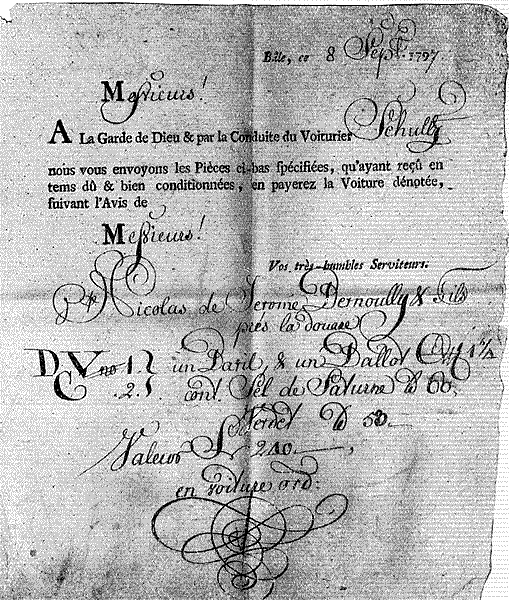 Bâle, ce 8 Sept. 1797
Messieurs!
A La Garde de Dieu & par la Conduite du Voiturier Schully
nous vous envoyons les Pièces ci-bas spécifiées, qu'ayant reçû en
tems dû & bien conditionnées, en payerez la Voiture dénotée,
suivant l'Avis de
Messieurs!
Vos très-humbles Serviteurs.
Nicolas de Jerome Bernoully & Fils
près la douane
no 1 un Baril, & un Ballot
2. cont. Sel de Saturne 60
50
Valeur 240
en voiture ord: